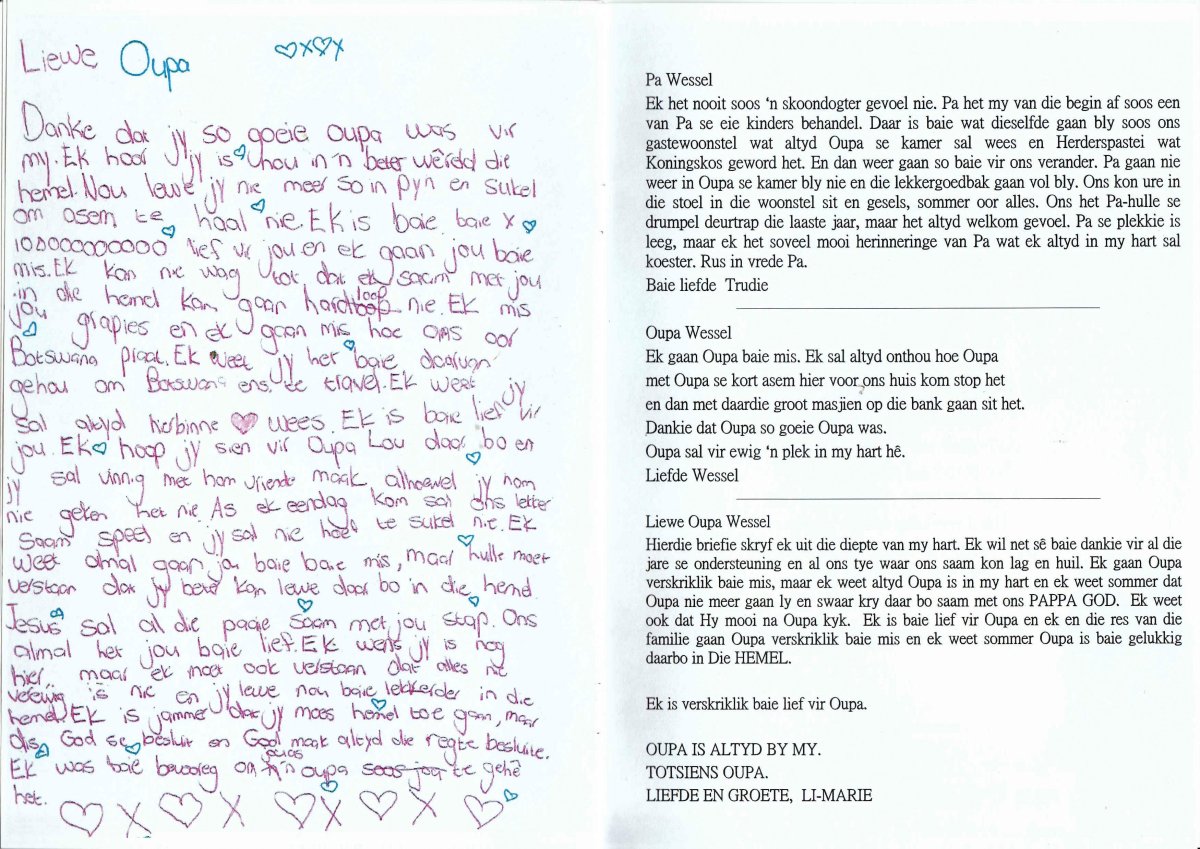 Liewe Oupa
Danke dat jy so goeie oupa was vir
my. Ek hoor jy is in 'n beter wêreld die
hemel. Nou lewe jy nie meer so in pyn en sukel
om asem te haal nie. Ek is baie baie x
100000000000 lief vir jou en ek gaan jou baie
mis. Ek kan nie wag tot dat ek saam met jou
in die hemel kan gaan hardloop nie. Ek mis
jou grapies en ek gaan mis hoe ons oor
Botswana praat. Ek weet jy het baie daarvan
gehou om Botswana ens. te travel. Ek weet jy
sal altyd herbinne wees. Ek is baie lief vir
jou. Ek hoop jy sien vir Oupa Lou daar bo en
jy sal vinnig met hom vriende maak alhoewel jy hom
nie geken het nie. As ek eendag kom sal ons lekker
saam speel en jy sal nie hoef te sukel nie. Ek
weet almal gaan jou baie baie mis, maar hulle moet
verstaan dat jy beter kan lewe daar bo in die hemel.
Jesus sal al die paaie saam met jou stap. Ons
almal het jou baie lief. Ek wens jy is nog
hier. maar ek moet ook verstaan dat alles nie
vereiwig is nie en jy lewe nou baie lekkerder in die
hemel. Ek is jammer dat jy moes hemel toe gaan, maar
dis God se besluit en God maak altyd die regte besluite.
Ek was baie bevooreg om 'n oupa soos jou te gehê
het.
Pa Wessel
Ek het nooit soos ‘n skoondogter gevoel nie. Pa het my van die begin af soos een
van Pa se eie kinders behandel. Daar is baie wat dieselfde gaan bly soos ons
gastewoonstel wat altyd Oupa se kamer sal wees en Herderspastei wat
Koningskos geword het. En dan weer gaan so baie vir ons verander. Pa gaan nie
weer in Oupa se kamer bly nie en die lekkergoedbak gaan vol bly. Ons kon ure in
die stoel in die woonstel sit en gesels, sommer oor alles. Ons het Pa-hulle se
drumpel deurtrap die laaste jaar, maar het altyd welkom gevoel. Pa se plekkie is
leeg, maar ek het soveel mooi herinneringe van Pa wat ek altyd in my hart sal
koester. Rus in vrede Pa.
Baie liefde Trudie
Oupa Wessel
Ek gaan Oupa baie mis. Ek sal altyd onthou hoe Oupa
met Oupa se kort asem hier voor ons huis kom stop het
en dan met daardie groot masjien op die bank gaan sit het.
Dankie dat Oupa so goeie Oupa was.
Oupa sal vir ewig ‘n plek in my hart hê.
Liefde Wessel
Liewe Oupa Wessel
Hierdie briefie skryf ek uit die diepte van my hart. Ek wil net sê baie dankie vir al die
jare se ondersteuning en al ons tye waar ons saam kon lag en huil. Ek gaan Oupa
verskriklik baie mis, maar ek weet altyd Oupa is in my hart en ek weet sommer dat
Oupa nie meer gaan ly en swaar kry daar bo saam met ons PAPPA GOD. Ek weet
ook dat Hy mooi na Oupa kyk. Ek is baie lief vir Oupa en ek en die res van die
familie gaan Oupa verskriklik baie mis en ek weet sommer Oupa is baie gelukkig
daarbo in Die HEMEL.
Ek is verskriklik baie lief vir Oupa.
OUPA IS ALTYD BY MY.
TOTSIENS OUPA.
LIEFDE EN GROETE, LI-MARIE